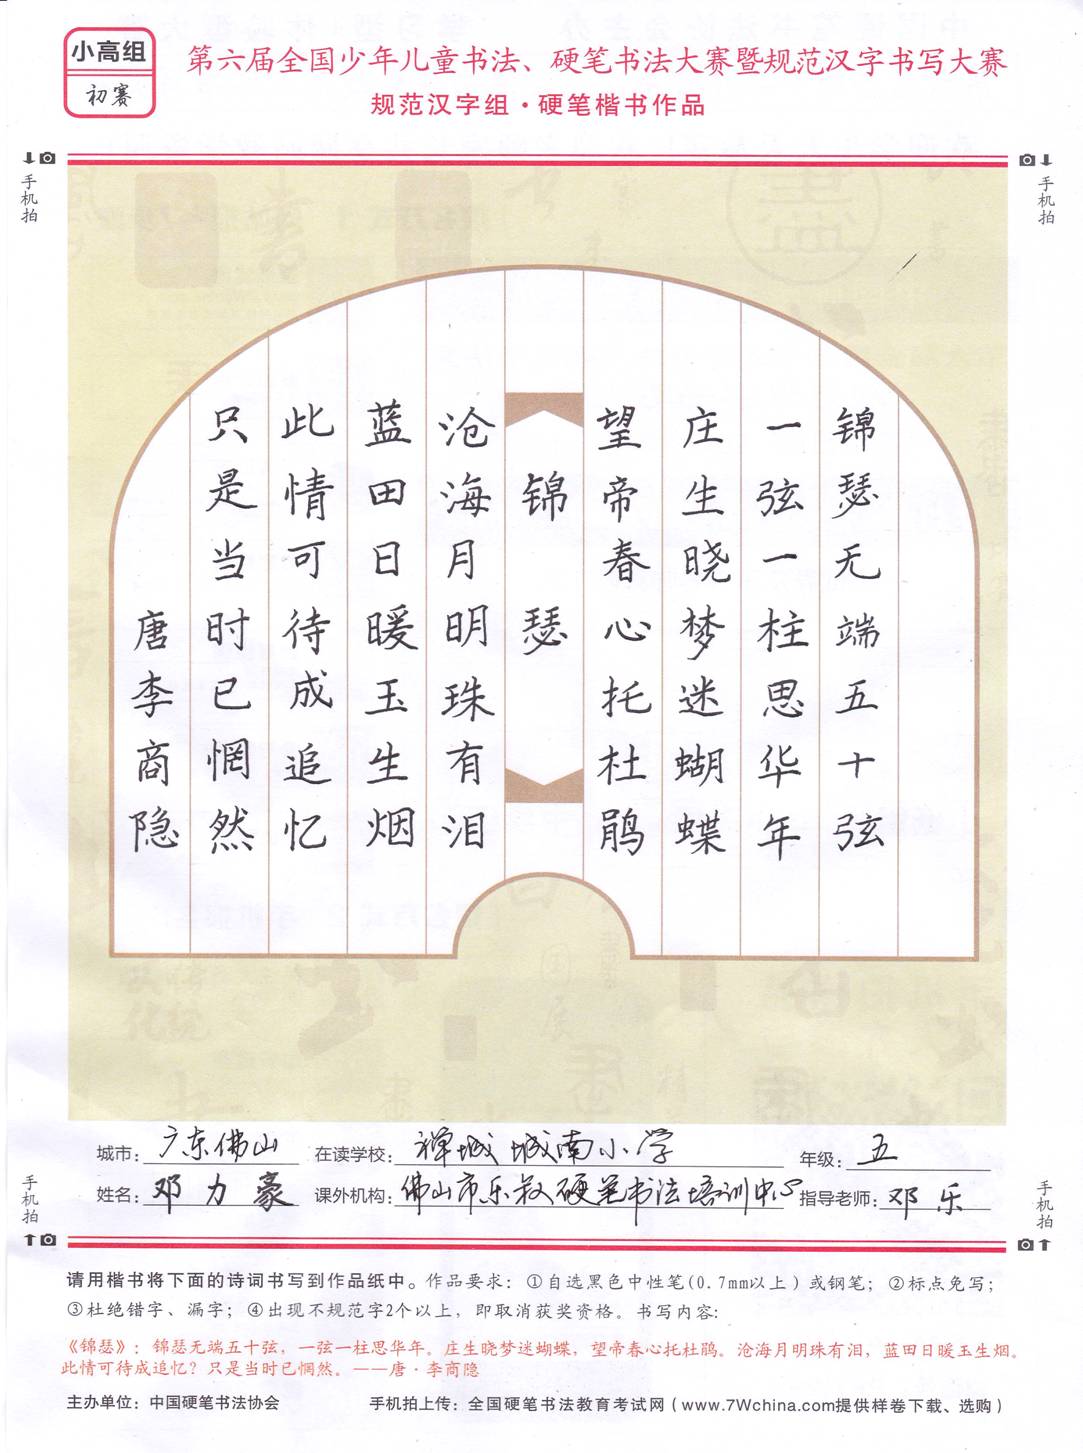 小高组
初赛
第六届全国少年儿童书法、硬笔书法大赛暨规范汉字书写大赛
规范汉字组·硬笔楷书作品
手机拍
手机拍
锦瑟无端五十弦
一弦一柱思华年
庄生晓梦迷蝴蝶
望帝春心托杜鹃
锦瑟
沧海月明珠有泪
蓝田日暖玉生烟
此情可待成追忆
只是当时已惘然
唐李商隐
城市：广东佛山 在读学校：禅城城南小学 年级：五
姓名：邓力豪 课外机构：佛山市乐叔硬笔书法培训中心 指导老师：邓乐
手机拍
手机拍
请用楷书将下面的诗词书写到作品纸中。作品要求：①自选黑色中性笔(0.7mm以上)或钢笔；②标点免写；
③杜绝错字、漏字；④出现不规范字2个以上，即取消获奖资格。书写内容:
《锦瑟》：锦瑟无端五十弦，一弦一柱思华年。庄生晓梦迷蝴蝶，望帝春心托杜鹃。沧海月明珠有泪，蓝田日暖玉生烟。
此情可待成追忆？只是当时已惘然。——唐·李商隐
主办单位：中国硬笔书法协会 手机拍上传：全国硬笔书法教育考试网（www.7Wchina.com提供样卷下载、选购）